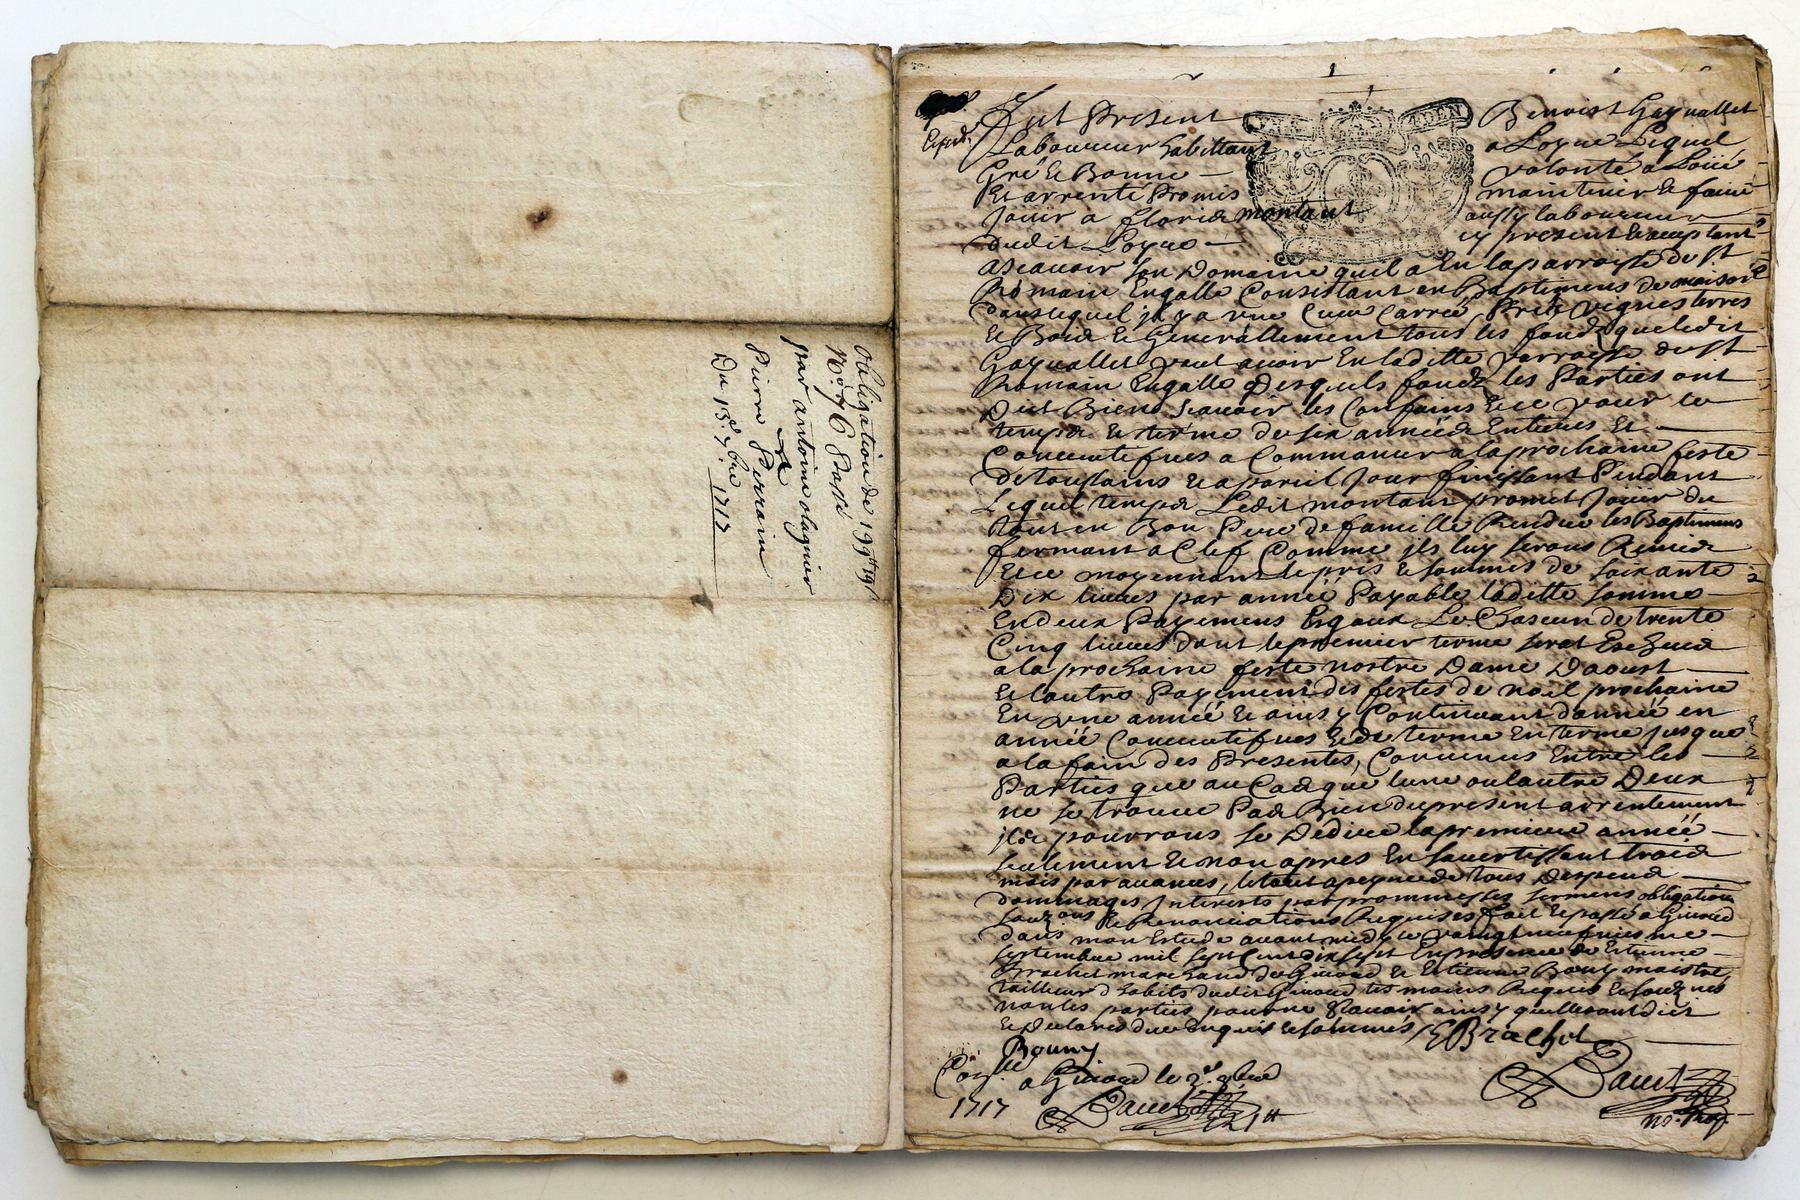 obligation de 199ᵗᵗ 19ˢ
par antoine olagnier
a
Pierre Perrain
Du 13ᵉ 7.bre 1717
Expedⁱᵉ
fut Present Benoist Gaynallet
Laboureur habittant a Loyne Lequel
Gré & Bonne volonté a Loüé
Et arrenté Promis maintenir & faire
Joüir a floris montant aussy laboureur
dudit Loyne cy present & acceptant
ascavoir son Domaine quil a En la parroisse de Sᵗ
Romain Engalle Consistant en Baptimens de maison
dans lequel jl y a une Cuve Carrée, Prés, vignes terres
& Bois & Generallement tous les fondz que ledit
Gaynallet peut avoir En laditte Parroisse de Sᵗ
Romain Engalle desquels fondz les Parties ont
Dit Bien scavoir les Confains & ce pour le
temps & terme de six années Entieres Et
Consecutifves a Commancer a la prochaine feste
de toussains & a pareil Jour finissant Pendant
Lequel temps Ledit montant promet Joüir du
tout en Bon Pere de famille Rendre les Baptimens
fermant a Clef Comme jls luy seront Remis
Et ce moyennant le pris & somme de soixante
Dix livres par année Payable laditte somme
En deux Payemens Esgaux Le Chascun de trente
Cinq livres dont le premier terme serat Escheu
a la prochaine feste nostre Dame Daoust
& lautre Payement des festes de noel prochaine
En une année & ainsy Continuant dannée en
année Consecutifves & de terme En terme jusque
a la fain des Presentes, Convenus Entre les
Parties que au Cas que lune ou lautre Deux
ne se trouve Pas Bien du present arrentement
jls pourrons se Dedire la premiere année
seulement & non apres En savertissant trois
mois par avance, le tout a peyne de tous Despens
dommages Interests par promesses sermens obligations
& Renonciations Requises fait & passé a Givord
dans mon Estude avant midy ce vaingt neufviesme
septembre mil sept Cent dix sept En presence de Estienne
Brachet marchand de Givord & Estienne Bouny maistre
tailleur d habits dudit Givord tesmoins Requis & soubznes
non les parties pour ne scavoir ainsy quelles ont dict
& Declaré de ce Enquis & sommés EBrachet
Bouny
Conˡˡᵉ a Givord le 2ᵉ. 9bre
1717